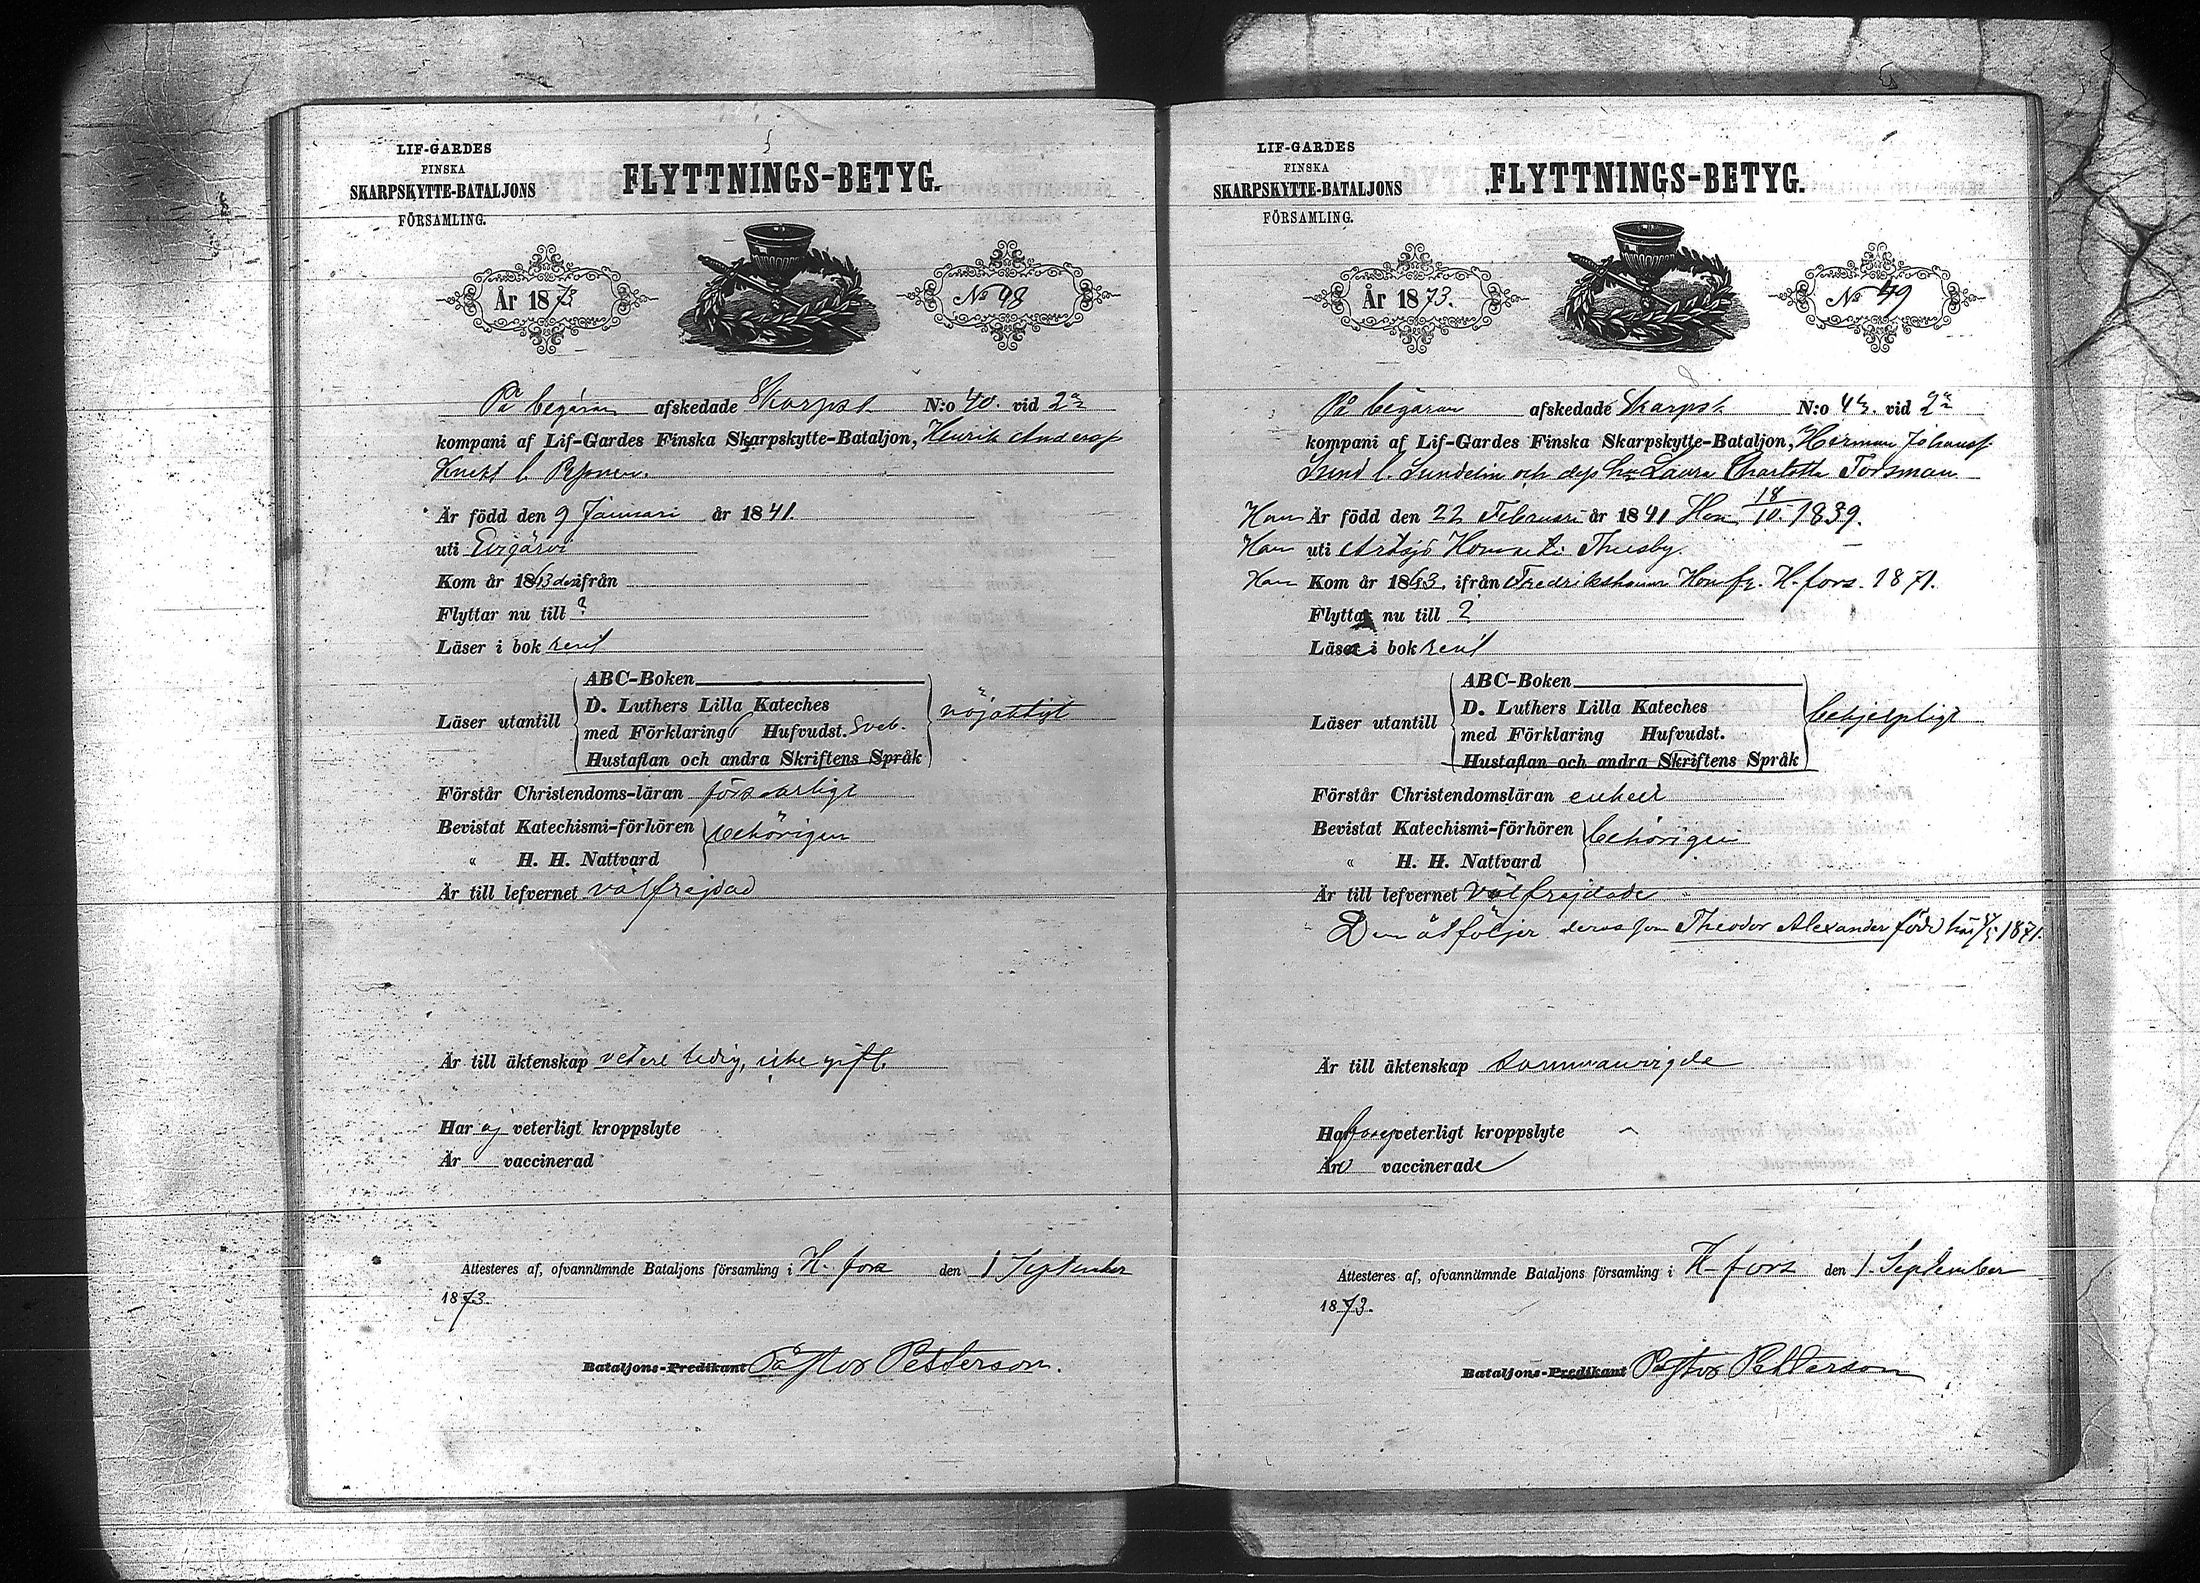 LIF-GARDES
FINSKA
SKARPSKYTTE-BATALJONS
FÖRSAMLING.
FLYTTNINGS-BETYG.
År 1873
No 98
På begäran afskedade Skarpsk. N:o 40. vid 2a
kompani af Lif-Gardes Finska Skarpskytte-Bataljon, Henrik Andersf
Knekt l.
Är född den 9 Januari år 1841.
uti Evijärvi
Kom år 1863 ifrån
Flyttar nu till ?
Läser i bok rent
ABC-Boken
Läser utantill
D. Luthers Lilla Kateches
med Förklaring 6 Hufvudst. Sveb.
Hustaflan och andra Skriftens Språk
nöjaktigt
Förstår Christendoms-läran försvarligt
Bevistat Katechismi-förhören
" H. H. Nattvard
behörigen
Är till lefvernet välfrejdad
Är till äktenskap veterl. ledig, icke gift.
Har ej veterligt kroppslyte
Är vaccinerad
Attesteres af, ofvannämnde Bataljons församling i H-fors den 1 September
1873.
Bataljons-Predikant Pastor Petterson.
LIF-GARDES
FINSKA
SKARPSKYTTE-BATALJONS
FÖRSAMLING.
FLYTTNINGS-BETYG.
År 1873.
No 99
På begäran afskedade Skarpsk. N:o 43. vid 2a
kompani af Lif-Gardes Finska Skarpskytte-Bataljon, Herman Johansf
Sund l. Sundelin och dess hu Laura Charlotta Forsman
Han Är född den 22 Februari år 1841 Hon 18/10 1839.
Han uti Artsjö Hon uti Thusby.
Han Kom år 1863, ifrån Fredrikshamn Hon fr. H-fors. 1871.
Flytta nu till ?
Läsa i bok rent
ABC-Boken
Läser utantill
D. Luthers Lilla Kateches
med Förklaring Hufvudst.
Hustaflan och andra Skriftens Språk
behjelpligt
Förstår Christendomsläran enkelt
Bevistat Katechismi-förhören
" H. H. Nattvard
behörigen
Är till lefvernet välfrejdade
Dem åtföljer deras son Theodor Alexander född här 1871.
Är till äktenskap sammanvigde
Hafva ej veterligt kroppslyte
Äro vaccinerade
Attesteres af, ofvannämnde Bataljons församling i H-fors den 1. September
1873.
Bataljons-Predikant Pastor Petterson